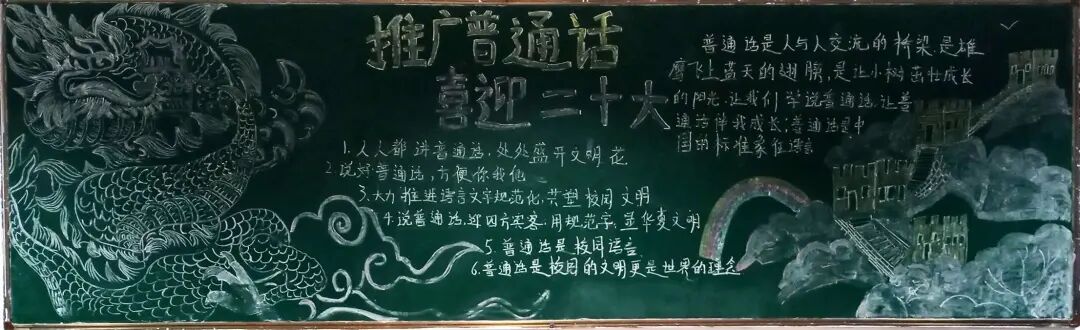 推广普通话
喜迎二十大
1.人人都讲普通话,处处盛开文明花
2.说好普通话,方便你我他
3.大力推进语言文字规范化,共塑校园文明
4.说普通话,迎四方宾客,用规范字,显华夏文明
5.普通话是校园语言
6.普通话是校园的文明更是世界的理念
普通话是人与人交流的桥梁是雄
鹰飞上蓝天的翅膀,是让小树茁壮成长
的阳光,让我们学说普通话,让普
通话伴我成长;普通话是中
国的标准家在语言